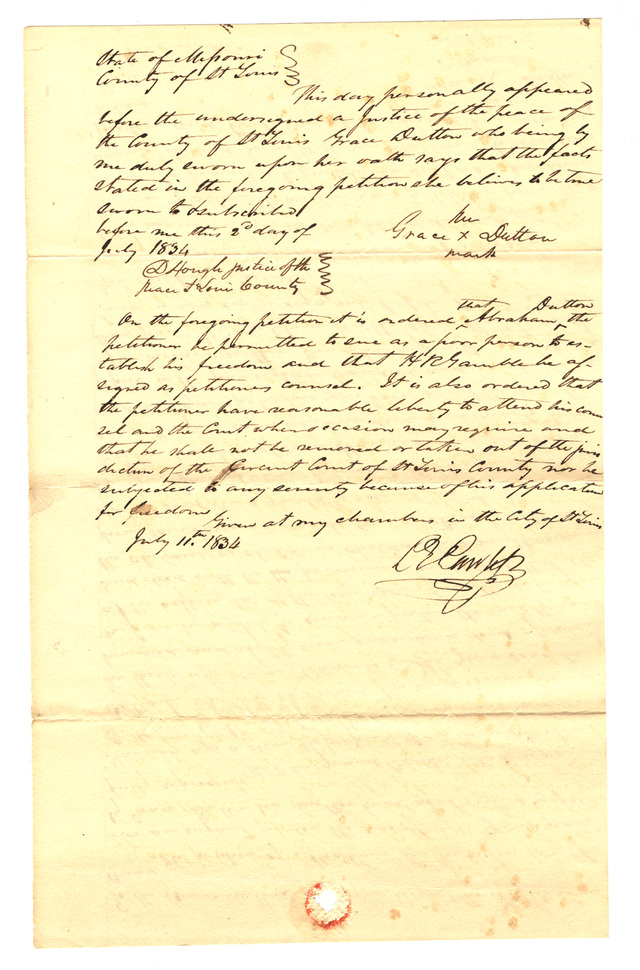 State of Missouri
County of St Louis
This day personally appeared
before the undersigned a Justice of the peace of
the County of St Louis Grace Dutton who being by
me duly sworn upon her oath says that the facts
stated in the foregoing petition she believes to be true
sworn to & subscribed
before me this 2d day of
July 1834
her
Grace x Dutton
mark
D Hough Justice of the
peace St Louis County
On the foregoing petition it is ordered that Abraham Dutton the
petitioner be permitted to sue as a poor person to es-
tablish his freedom and that H R Gamble be as-
signed as petitioners counsel. It is also ordered that
the petitioner have reasonable liberty to attend his coun
sel and the Court when occasion may require and
that he shall not be removed or taken out of the juris
diction of the Circuit Court of St Louis County nor be
subjected to any severity because of his application
for freedom
Given at my chambers in the City of St Louis
July 11th. 1834